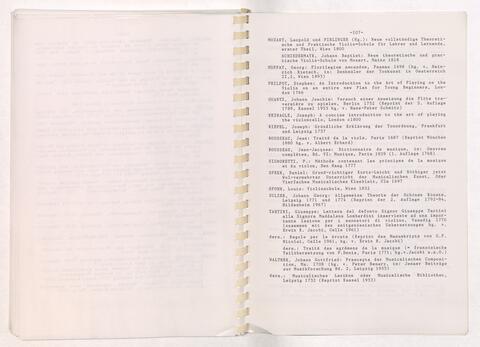 -107-
MOZART, Leopold und PIRLINGER (Hg.): Neue vollständige Theoreti-
sche und Praktische Violin-Schule für Lehrer und Lernende,
erster Theil, Wien 1800
SCHIEDERMAYR, Johann Baptist: Neue theoretische und prakti-
sche Violin-Schule von Mozart, Mainz 1818
MUFFAT, Georg: Florilegium secundum, Passau 1698 (hg. v. Hein-
rich Rietsch, in: Denkmäler der Tonkunst in Oesterreich
II,2, Wien 1895)
PHILPOT, Stephen: An Introduction to the Art of Playing on the
Violin on an entire new Plan for Young Beginners, Lon-
don 1766
QUANTZ, Johann Joachim: Versuch einer Anweisung die Flöte tra-
versière zu spielen, Berlin 1752 (Reprint der 3. Auflage
1789, Kassel 1953 hg. v. Hans-Peter Schmitz)
REINAGLE, Joseph: A concise introduction to the art of playing
the violoncello, London c1800
RIEPEL, Joseph: Gründliche Erklärung der Tonordnung, Frankfurt
und Leipzig 1757
ROUSSEAU, Jean: Traité de la viole, Paris 1687 (Reprint München
1980 hg. v. Albert Erhard)
ROUSSEAU, Jean-Jacques: Dictionnaire de musique, in: Oeuvres
complètes, Bd. VI: Musique, Paris 1839 (1. Auflage 1768)
SIGNORETTI, P.: Méthode contenant les principes de la musique
et du violon, Den Haag 1777
SPEER, Daniel: Grund-richtiger Kurtz-Leicht und Nöthiger jetzt
Wol-vermehrter Unterricht der Musicalischen Kunst, Oder
Vierfaches Musicalisches Kleeblatt, Ulm 1697
SPOHR, Louis: Violinschule, Wien 1832
SULZER, Johann Georg: Allgemeine Theorie der Schönen Künste,
Leipzig 1771 und 1774 (Reprint der 2. Auflage 1792-94,
Hildesheim 1967)
TARTINI, Giuseppe: Lettera del defonto Signor Giuseppe Tartini
alla Signora Maddalena Lombardini inserviente ad una impor-
tante lezione per i suonatori di violino, Venedig 1770
(zusammen mit den zeitgenössischen Uebersetzungen hg. v.
Erwin R. Jacobi, Celle 1961)
ders.: Regole per le Arcate (Reprint des Manuskripts von G.F.
Nicolai, Celle 1961, hg. v. Erwin R. Jacobi)
ders.: Traité des agréments de la musique (= französische
Teilübersetzung von P.Denis, Paris 1771; hg.v.Jacobi a.a.O.)
WALTHER, Johann Gottfried: Praecepta der Musicalischen Composi-
tion, Ms. 1708 (hg. v. Peter Benary, in: Jenaer Beiträge
zur Musikforschung Bd. 2, Leipzig 1955)
ders.: Musicalisches Lexikon oder Musicalische Bibliothec,
Leipzig 1732 (Reprint Kassel 1953)